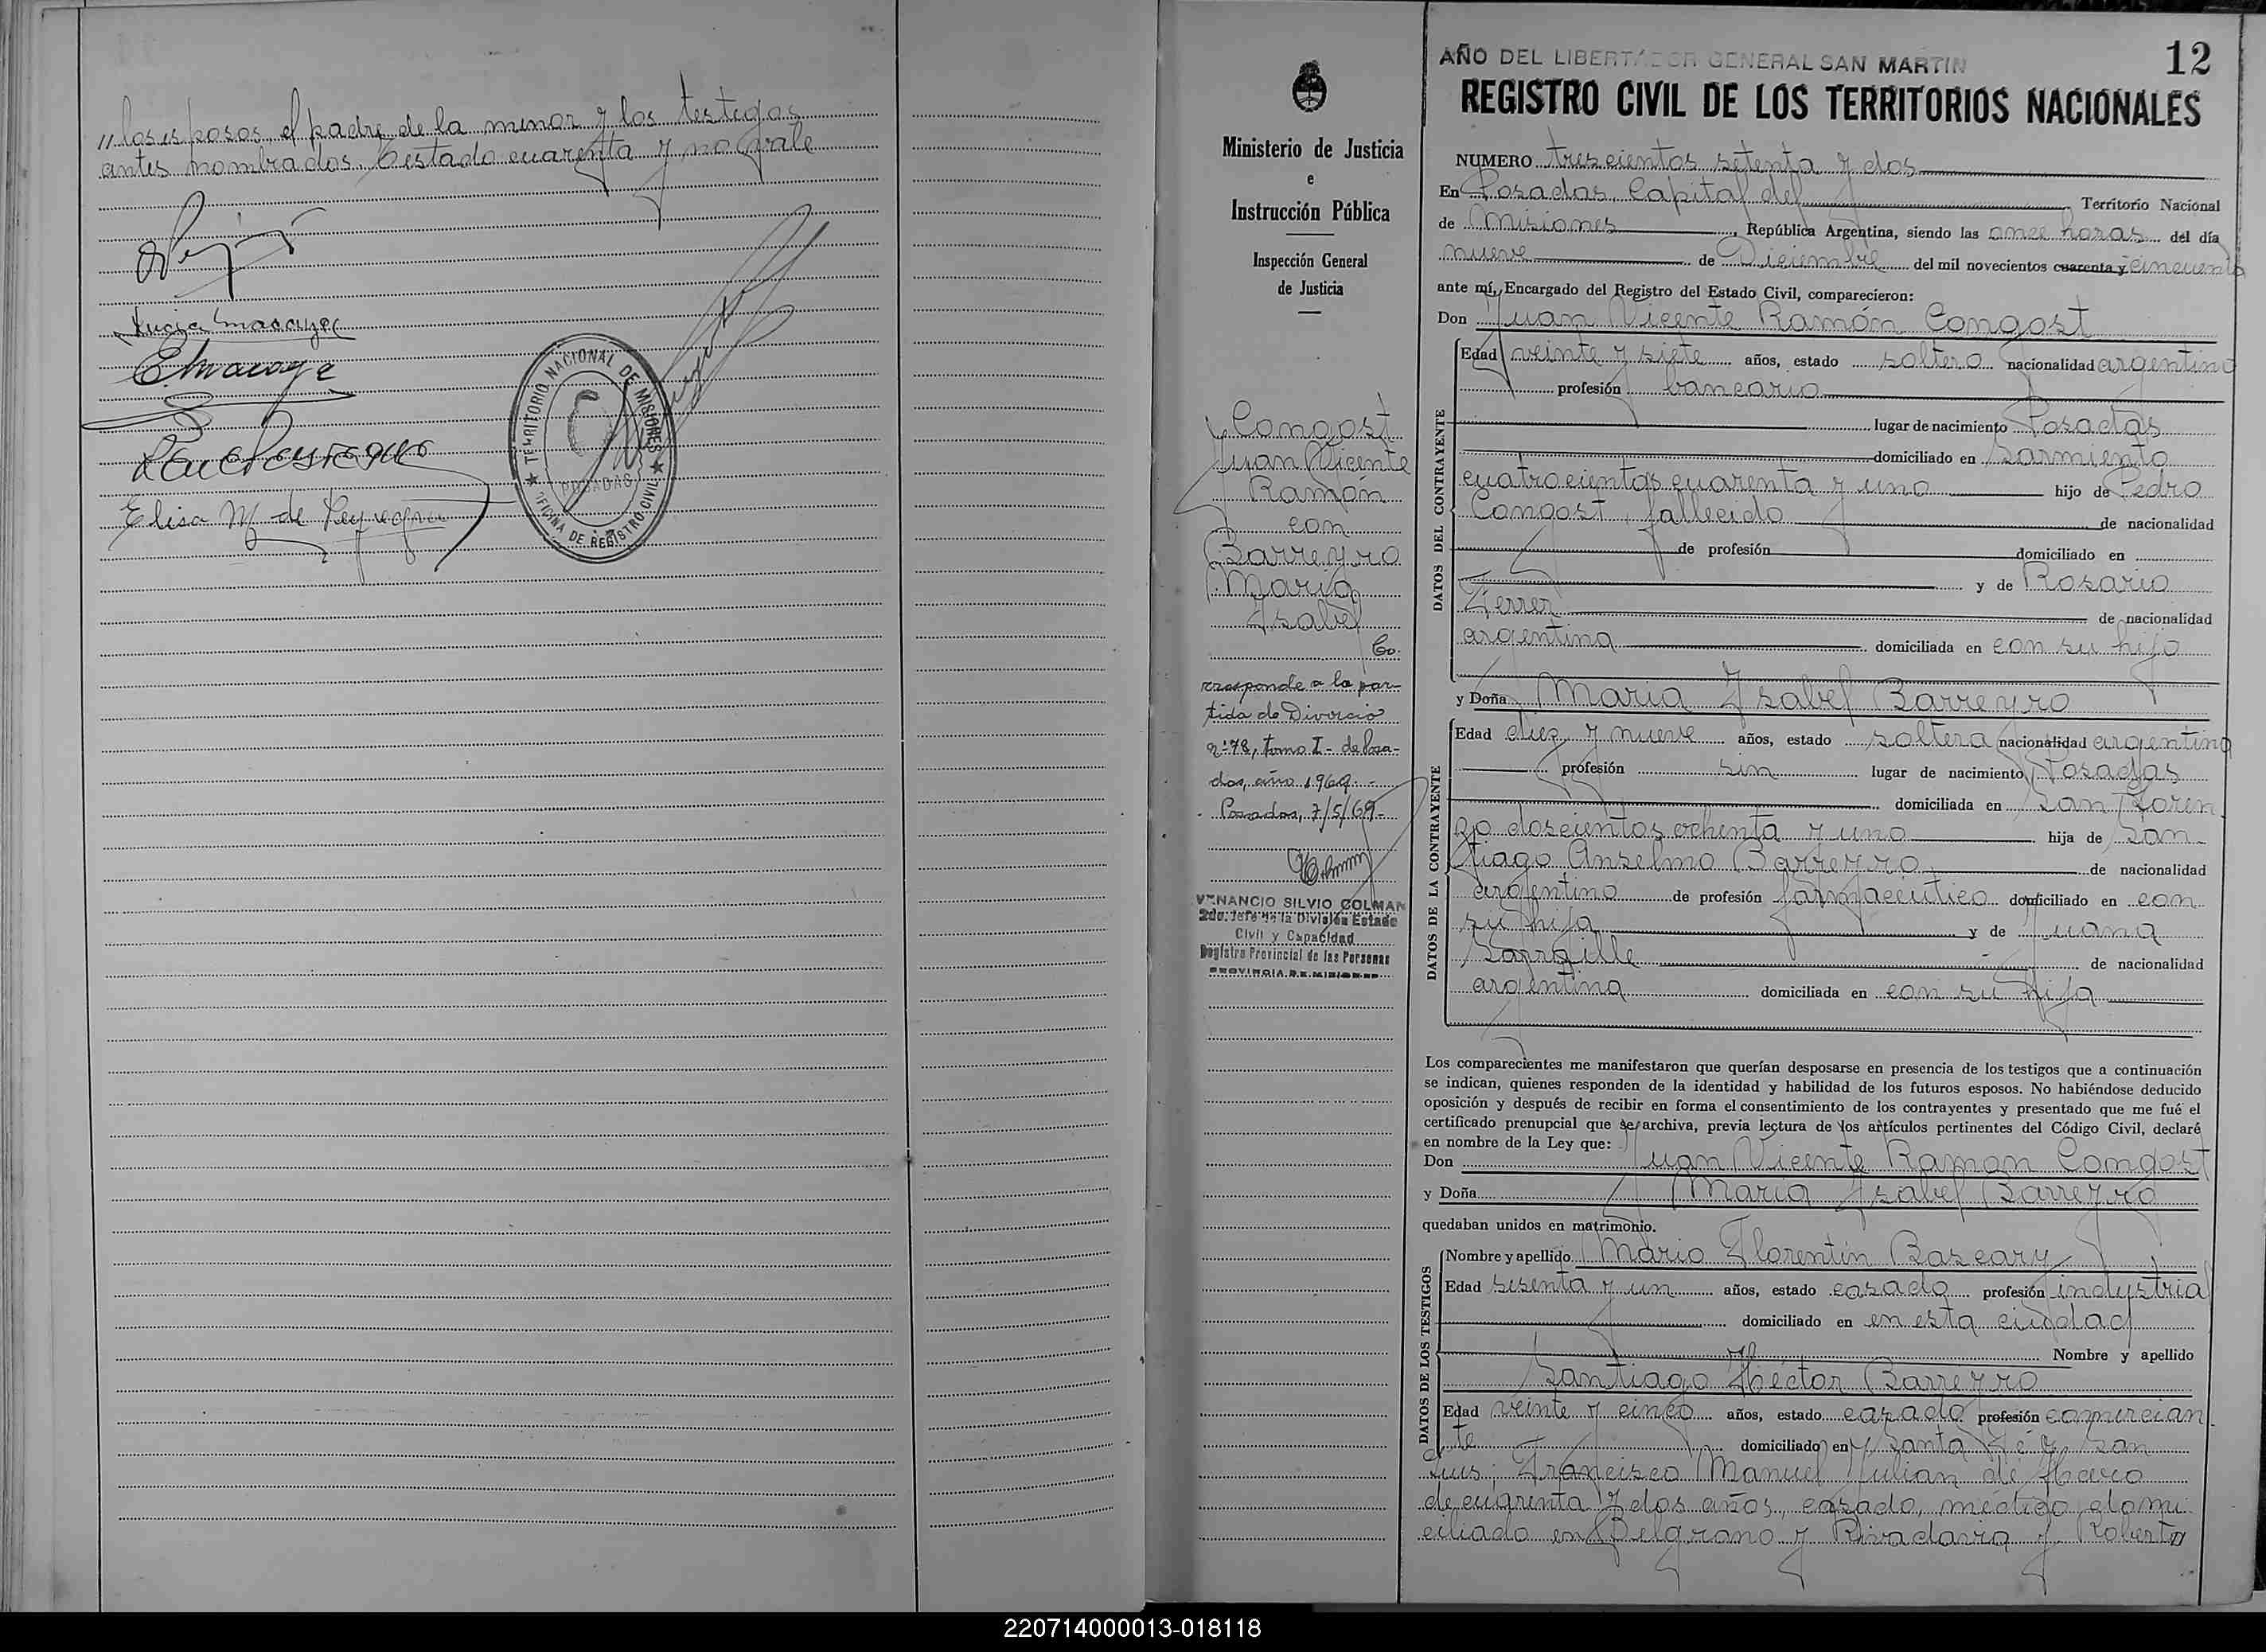 // los esposos, el padre de la menor y los testigos
antes nombrados. Testado cuarenta y no vale
Elisa M. de
TERRITORIO NACIONAL DE MISIONES
POSADAS
OFICINA DE REGISTRO CIVIL
Ministerio de Justicia
e
Instrucción Pública
Inspección General
de Justicia
Congost
Juan Vicente
Ramón
con
Barreyro
María
Isabel
Co-
rresponde a la par-
tida de Divorcio
nº 78, tomo I - de Posa-
das, año 1969.-
Posadas, 7/5/69-
VENANCIO SILVIO COLMAN
2do. Jefe de la División Estado
Civil y Capacidad
Registro Provincial de las Personas
PROVINCIA DE MISIONES
AÑO DEL LIBERTADOR GENERAL SAN MARTIN
12
REGISTRO CIVIL DE LOS TERRITORIOS NACIONALES
NUMERO trescientos setenta y dos
En Posadas, Capital del Territorio Nacional
de Misiones, República Argentina, siendo las once horas del día
nueve de Diciembre del mil novecientos cuarenta y cincuenta
ante mí, Encargado del Registro del Estado Civil, comparecieron:
Don Juan Vicente Ramón Congost
DATOS DEL CONTRAYENTE
Edad veinte y siete años, estado soltero nacionalidad argentino
profesión bancario
lugar de nacimiento Posadas
domiciliado en Sarmiento
cuatrocientos cuarenta y uno hijo de Pedro
Congost, fallecido de nacionalidad
de profesión domiciliado en
y de Rosario
Ferrer de nacionalidad
argentina domiciliada en con su hijo
y Doña María Isabel Barreyro
DATOS DE LA CONTRAYENTE
Edad diez y nueve años, estado soltera nacionalidad argentina
profesión sin lugar de nacimiento Posadas
domiciliada en San Loren
zo doscientos ochenta y uno hija de San-
tiago Anselmo Barreyro de nacionalidad
argentino de profesión farmacéutico domiciliado en con
su hija y de Juana
de nacionalidad
argentina domiciliada en con su hija
Los comparecientes me manifestaron que querían desposarse en presencia de los testigos que a continuación
se indican, quienes responden de la identidad y habilidad de los futuros esposos. No habiéndose deducido
oposición y después de recibir en forma el consentimiento de los contrayentes y presentado que me fué el
certificado prenupcial que se archiva, previa lectura de los artículos pertinentes del Código Civil, declaré
en nombre de la Ley que:
Don Juan Vicente Ramon Congost
y Doña María Isabel Barreyro
quedaban unidos en matrimonio.
DATOS DE LOS TESTIGOS
Nombre y apellido Mario Florentin Bascary
Edad sesenta y un años, estado casado profesión industrial
domiciliado en en esta ciudad
Nombre y apellido
Santiago Héctor Barreyro
Edad veinte y cinco años, estado casado profesión comercian-
te domiciliado en Santa Fé y San
Luis; Francisco Manuel Julian de Haro
de cuarenta y dos años, casado, médico, domi-
ciliado en Belgrano y Rivadavia y Roberto
220714000013-018118